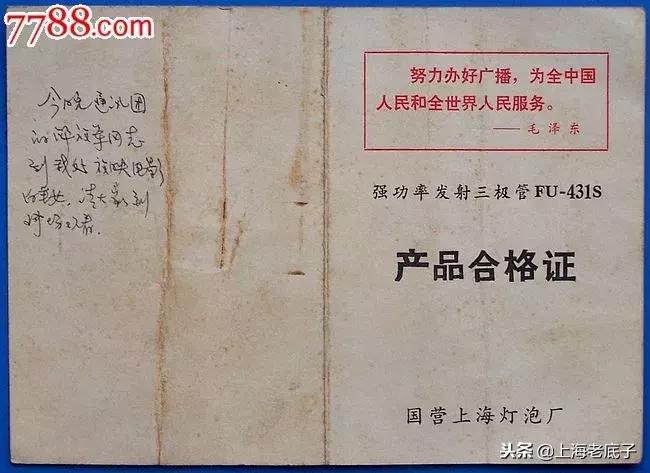 7788.com
今晚通讯团
的解放军同志
到我处放映电影
白毛女.请大家到
场观看.
努力办好广播,为全中国
人民和全世界人民服务。
——毛泽东
强功率发射三极管 FU-431S
产品合格证
国营上海灯泡厂
头条@上海老底子